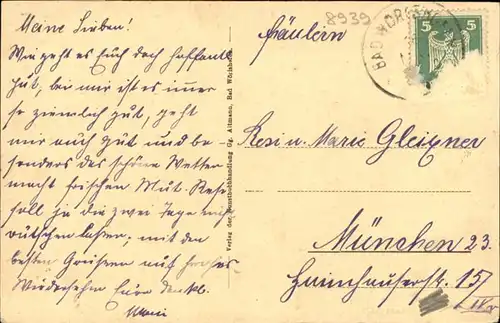 Meine Lieben!
Wie geht es Euch doch hoffentl.
gut, bei mir ist es immer
so ziemlich gut, geht
mir auch gut und be-
sonders das schöne Wetter
macht frischen Mut. Resi
soll ja die zwei Tage
lassen, mit den
besten Grüssen auf frohes
Wiedersehen Eure dankb.
Mari
Verlag der Kunstbuchhandlung Gg. Altmann, Bad Wörishofen
8939
5 5
BAD WÖRISH
Fräulein
Resi u. Marie Gleixner
München 23.
Haimhauserstr. 15/
IV r